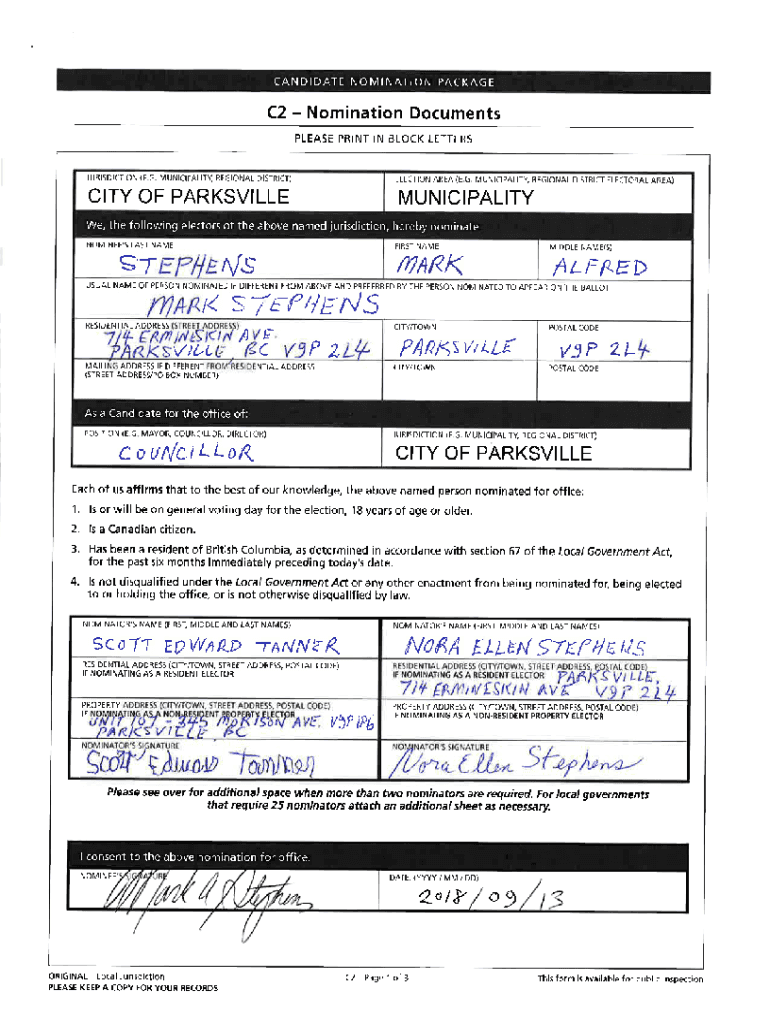 CANDIDATE NOMINATION PACKAGE
C2 – Nomination Documents
PLEASE PRINT IN BLOCK LETTERS
JURISDICTION (E.G. MUNICIPALITY, REGIONAL DISTRICT)
ELECTION AREA (E.G. MUNICIPALITY, REGIONAL DISTRICT ELECTORAL AREA)
CITY OF PARKSVILLE
MUNICIPALITY
We, the following electors of the above named jurisdiction, hereby nominate
NOMINEE'S LAST NAME
FIRST NAME
MIDDLE NAME(S)
STEPHENS
MARK
ALFRED
USUAL NAME OF PERSON NOMINATED IF DIFFERENT FROM ABOVE AND PREFERRED BY THE PERSON NOMINATED TO APPEAR ON THE BALLOT
MARK STEPHENS
RESIDENTIAL ADDRESS (STREET ADDRESS)
CITY/TOWN
POSTAL CODE
714 ERMINESKIN AVE.
PARKSVILLE, BC V9P 2L4
PARKSVILLE
V9P 2L4
MAILING ADDRESS IF DIFFERENT FROM RESIDENTIAL ADDRESS
(STREET ADDRESS/PO BOX NUMBER)
CITY/TOWN
POSTAL CODE
As a Candidate for the office of:
POSITION (E.G. MAYOR, COUNCILLOR, DIRECTOR)
JURISDICTION (E.G. MUNICIPALITY, REGIONAL DISTRICT)
COUNCILLOR
CITY OF PARKSVILLE
Each of us affirms that to the best of our knowledge, the above named person nominated for office:
1. Is or will be on general voting day for the election, 18 years of age or older.
2. Is a Canadian citizen.
3. Has been a resident of British Columbia, as determined in accordance with section 67 of the Local Government Act,
for the past six months immediately preceding today's date.
4. Is not disqualified under the Local Government Act or any other enactment from being nominated for, being elected
to or holding the office, or is not otherwise disqualified by law.
NOMINATOR'S NAME (FIRST, MIDDLE AND LAST NAMES)
NOMINATOR'S NAME (FIRST, MIDDLE AND LAST NAMES)
SCOTT EDWARD TANNER
NORA ELLEN STEPHENS
RESIDENTIAL ADDRESS (CITY/TOWN, STREET ADDRESS, POSTAL CODE)
IF NOMINATING AS A RESIDENT ELECTOR
RESIDENTIAL ADDRESS (CITY/TOWN, STREET ADDRESS, POSTAL CODE)
IF NOMINATING AS A RESIDENT ELECTOR
PARKSVILLE,
714 ERMINESKIN AVE V9P 2L4
PROPERTY ADDRESS (CITY/TOWN, STREET ADDRESS, POSTAL CODE)
IF NOMINATING AS A NON-RESIDENT PROPERTY ELECTOR
PROPERTY ADDRESS (CITY/TOWN, STREET ADDRESS, POSTAL CODE)
IF NOMINATING AS A NON-RESIDENT PROPERTY ELECTOR
UNIT 107 - 345 MORISON AVE.
PARKSVILLE BC
NOMINATOR'S SIGNATURE
NOMINATOR'S SIGNATURE
Scott Edward Tanner
Nora Ellen Stephens
Please see over for additional space when more than two nominators are required. For local governments
that require 25 nominators attach an additional sheet as necessary.
I consent to the above nomination for office.
NOMINEE'S SIGNATURE
DATE: (YYYY / MM / DD)
Mark A Stephens
2018/09/13
ORIGINAL – Local Jurisdiction
PLEASE KEEP A COPY FOR YOUR RECORDS
C2 – Page 1 of 3
This form is available for public inspection